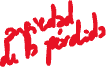 ansiedad
de la pérdida